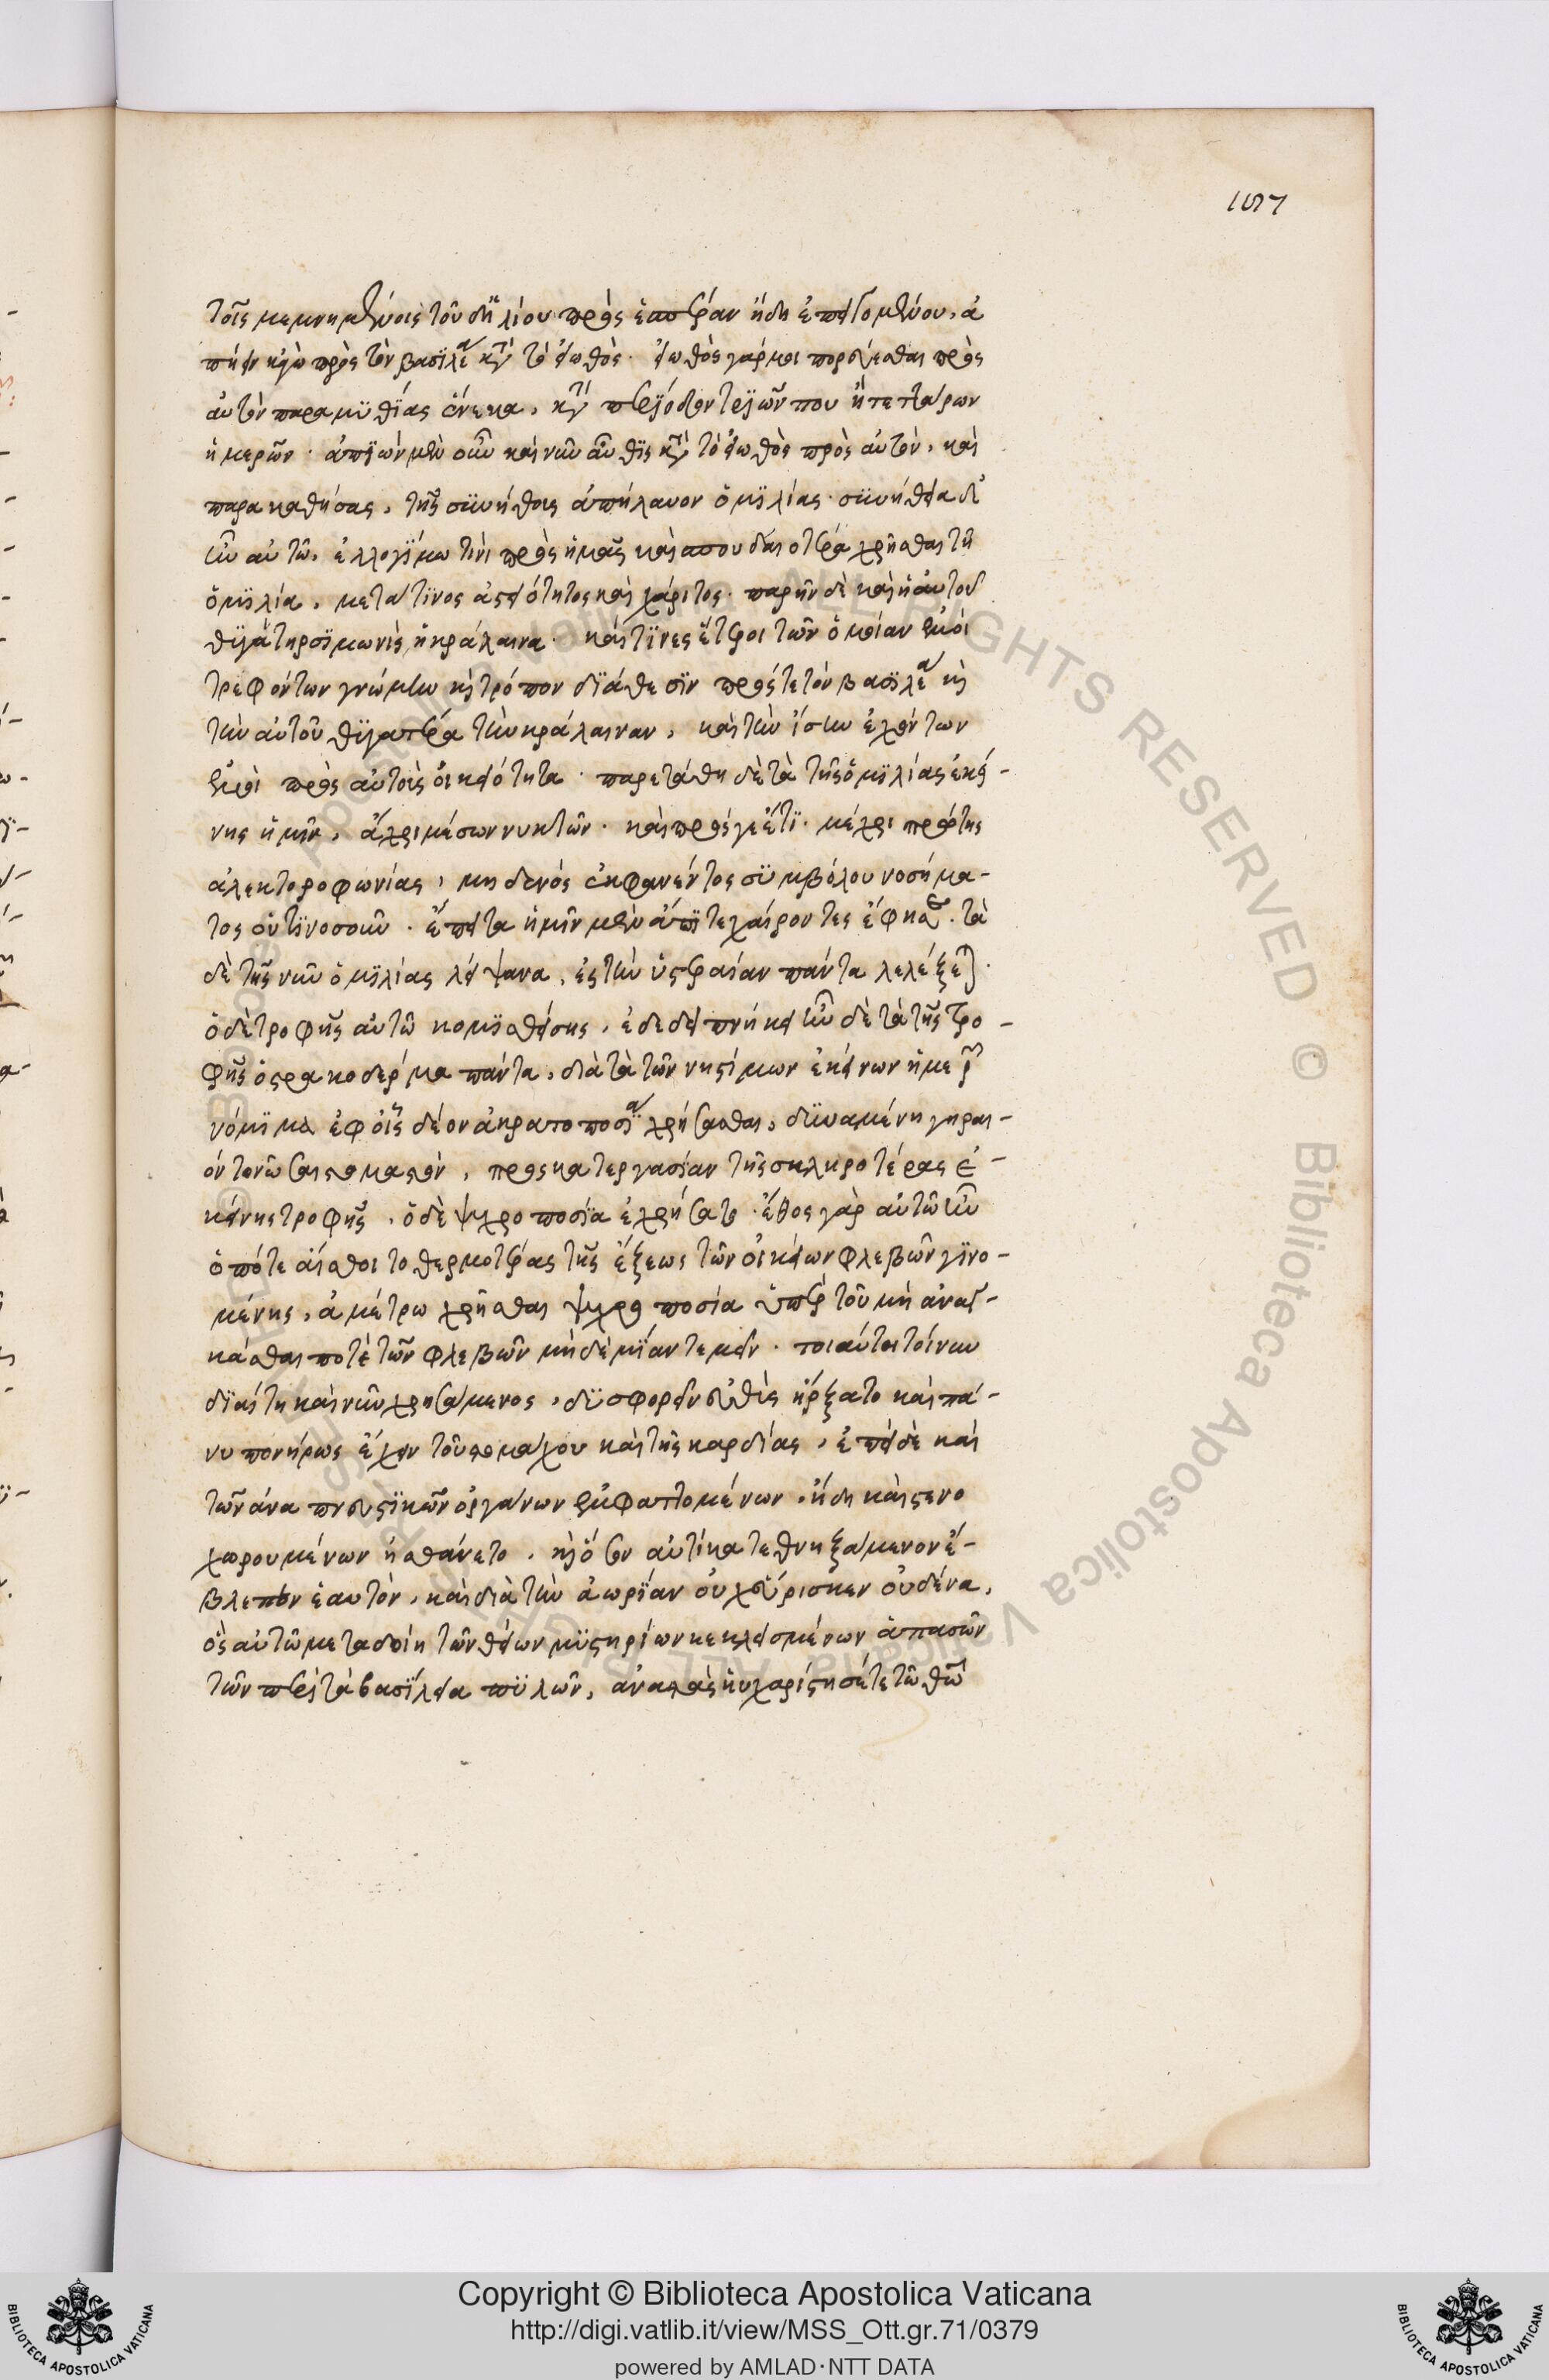 187
τοῖς μεμνημένοις τοῦ δὴ ἡλίου πρὸς ἑσπέραν ἤδη ἐπειγομένου, ἀ
πῄειν κἀγὼ πρὸς τὸν βασϊλέα κατὰ τὸ εἰωθὸς. εἰωθὸς γάρ μοι πορεύεσθαι πρὸς
αὐτὸν παραμϋθΐας ἕνεκα, κατὰ περΐοδον τρϊῶν που ἢ τεττάρων
ἡμερῶν. ἀπϊὼν μὲν οὖν καὶ νῦν αὖθϊς κατὰ τὸ εἰωθὸς πρὸς αὐτὸν, καὶ
παρακαθήσας, τῆς σϋνήθους ἀπήλαυον ὁμϊλίας. σϋνήθεια δ'
ἦν αὐτῶ, ἐλλογΐμω τινὶ πρὸς ἡμᾶς καὶ σπουδαιοτέρα χρῆσθαι τῆ
ὁμϊλία, μετά τϊνος ἀστειότητος καὶ χάριτος. παρῆν δὲ καὶ ἡ αὐτοῦ
θϋγάτηρ σϊμωνὶς, ἡ κράλαινα. καί τϊνες ἕτεροι τῶν ὁμοίαν ἐμοὶ
τρεφόντων γνώμην καὶ τρόπον δϊάθεσϊν πρός τε τὸν βασϊλέα καὶ
τὴν αὐτοῦ θϋγατέρα τὴν κράλαιναν, καὶ τὴν ἴσην ἐχόντων
ἐμοὶ πρὸς αὐτοὺς οἰκειότητα. παρετάθη δὲ τὰ τῆς ὁμϊλίας ἐκεί-
νης ἡμῖν, ἄχρι μέσων νυκτῶν. καὶ πρός γε ἔτϊ. μέχρι πρώτης
ἀλεκτοροφωνίας, μηδενὸς ἐκφανέντος σϋμβόλου νοσήμα-
τος οὑτϊνοσοῦν. ἔπειτα ἡμῖν μὲν ἄπϊτε χαίροντες ἔφησε. τὰ
δὲ τῆς νῦν ὁμϊλίας λείψανα, ἐς τὴν ὑστεραίαν πάντα λελέξεται.
ὁ δὲ τροφῆς αὐτῶ κομϊσθείσης, ἐδεδειπνήκει ἦν δὲ τὰ τῆς τρο-
φῆς ὀστρακόδερμα πάντα, διὰ τὰ τῶν νηστίμων ἐκείνων ἡμερῶν
νόμϊμα ἐφ' οἷς δέον ἀκρατοποσΐα χρήσασθαι, δϋναμένη γηραι-
ὸν τονῶσαι στομαχὸν, πρὸς κατεργασΐαν τῆς σκληροτέρας ἐ-
κείνης τροφῆς. ὁ δὲ ψυχροποσΐα ἐχρήσατο. ἔθος γὰρ αὐτῶ ἦν
ὁπότε αἴσθοιτο θερμοτέρας τῆς ἕξεως τῶν οἰκείων φλεβῶν γϊνο-
μένης, ἀμέτρω χρῆσθαι ψυχροποσία ὑπὲρ τοῦ μὴ ἀναγ-
κάσθαι ποτὲ τῶν φλεβῶν μηδὲ μΐαν τεμεῖν. τοιαύτη τοίνυν
δϊαίτη καὶ νῦν χρησάμενος, δϋσφορεῖν εὐθὺς ἤρξατο καὶ πά-
νυ πονήρως ἔχειν τοῦ στομάχου καὶ τῆς καρδίας, ἐπεὶ δὲ καὶ
τῶν ἀναπνευστϊκῶν ὀργάνων ἐμφραττομένων, ἤδη καὶ στενο
χωρουμένων ἠσθάνετο, καὶ ὅσον αὐτίκα τεθνηξάμενον ἔ-
βλεπεν ἑαυτὸν, καὶ διὰ τὴν ἀωρΐαν οὐχ εὕρισκεν οὐδένα,
ὃς αὐτῶ μεταδοίη τῶν θείων μϋστηρίων κεκλεισμένων ἁπασῶν
τῶν περὶ τὰ βασΐλεια πϋλῶν, ἀναστὰς ηὐχαρίστησέ τε τῶ θεῶ
Copyright © Biblioteca Apostolica Vaticana
http://digi.vatlib.it/view/MSS_Ott.gr.71/0379
powered by AMLAD·NTT DATA